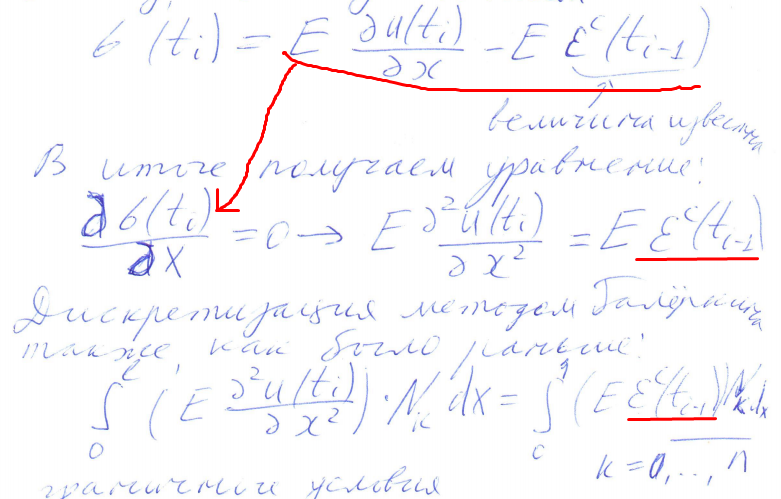 σ(tᵢ) = E ∂u(tᵢ)/∂x − E εᶜ(tᵢ₋₁)
величина известна
В итоге получаем уравнение:
∂σ(tᵢ)/∂x = 0 → E ∂²u(tᵢ)/∂x² = E εᶜ(tᵢ₋₁)
Дискретизация методом Галёркина
также, как было раньше:
∫₀ (E ∂²u(tᵢ)/∂x²) · Nₖ dx = ∫₀ (E εᶜ(tᵢ₋₁)) Nₖ dx
k = 0, ..., n
граничные условия